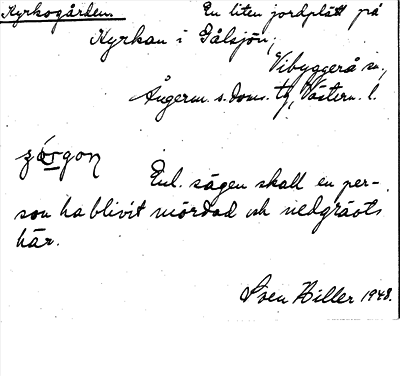 Kyrkogården. En liten jordplätt på
Kyrkan i Gålsjön,
Vibyggerå sn,
Ångerm. s. doms. tg, Västern. l.
gón
Enl. sägen skall en per-
son ha blivit mördad och nedgrävts
här.
Sven Hiller 1948.